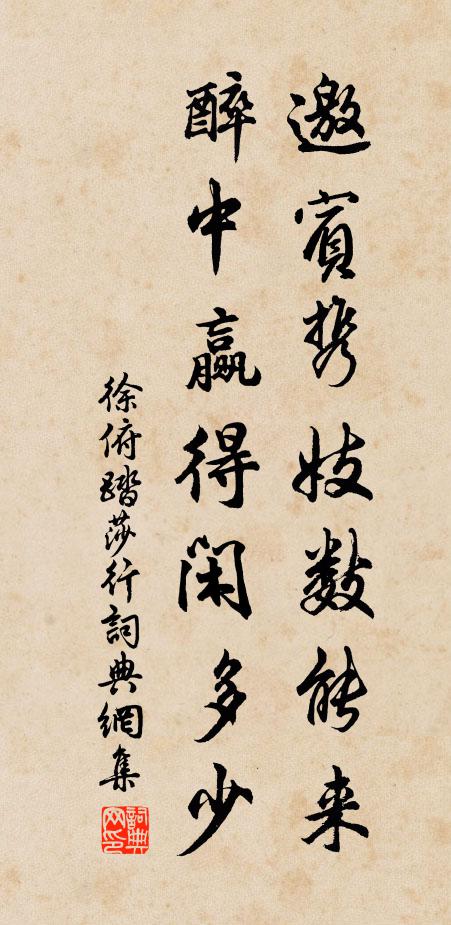 邀賓携妓數能来
醉中贏得闲多少
徐俯踏莎行詞典網集
詞典网印